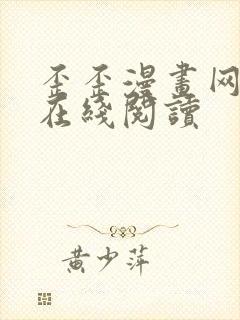 歪歪漫畫网
在綫閱讀
黄少萍